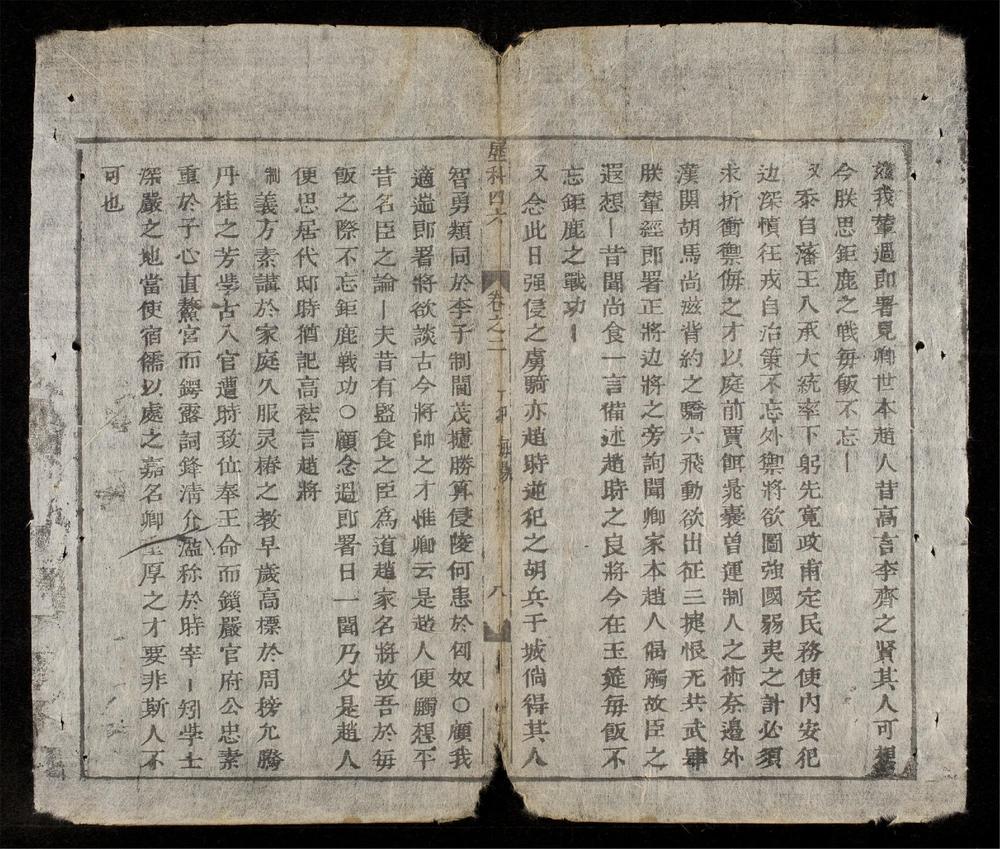 茲我輦過郎署見卿世本趙人昔高言李齊之賢其人可想
今朕思鉅鹿之戰每飯不忘丨
又泰自藩王入承大統率下躬先寬政甫定民務使內安犯
边深慎徃戎自治策不忘外禦將欲圖強國弱夷之計必須
求折衝禦侮之才以庭前賈餌晁囊曾運制人之術奈邉外
漢関胡馬尚滋背約之驕六飛動欲出征三捷恨无共武肆
朕輦經郎署正將边將之旁詢聞卿家本趙人偈觸故臣之
遐想丨昔聞尚食一言備述趙時之良將今在玉筵每飯不
忘鉅鹿之戰功丨
又念此日强侵之虜騎亦趙時迤犯之胡兵干城倘得其人
星科四六 卷之二 八
智勇類同於李子制閫茂攄勝算侵陵何患於匈奴〇顧我
適遄郎署將欲談古今將帥之才惟卿云是趙人便觸想平
昔名臣之論丨夫昔有監食之臣爲道趙家名將故吾於每
飯之際不忘鉅鹿戰功〇顧念過郎署日一聞乃父是趙人
便思居代邸時猶記高祛言趙將
制義方素講於家庭久服灵椿之教早歲高標於周榜允騰
丹桂之芳學古入官遭時致位奉王命而鎖嚴官府公忠素
重於予心直鰲宮而鍔露詞鋒清介溢称於時宰丨矧學士
深嚴之地當使宿儒以處之嘉名卿重厚之才要非斯人不
可也